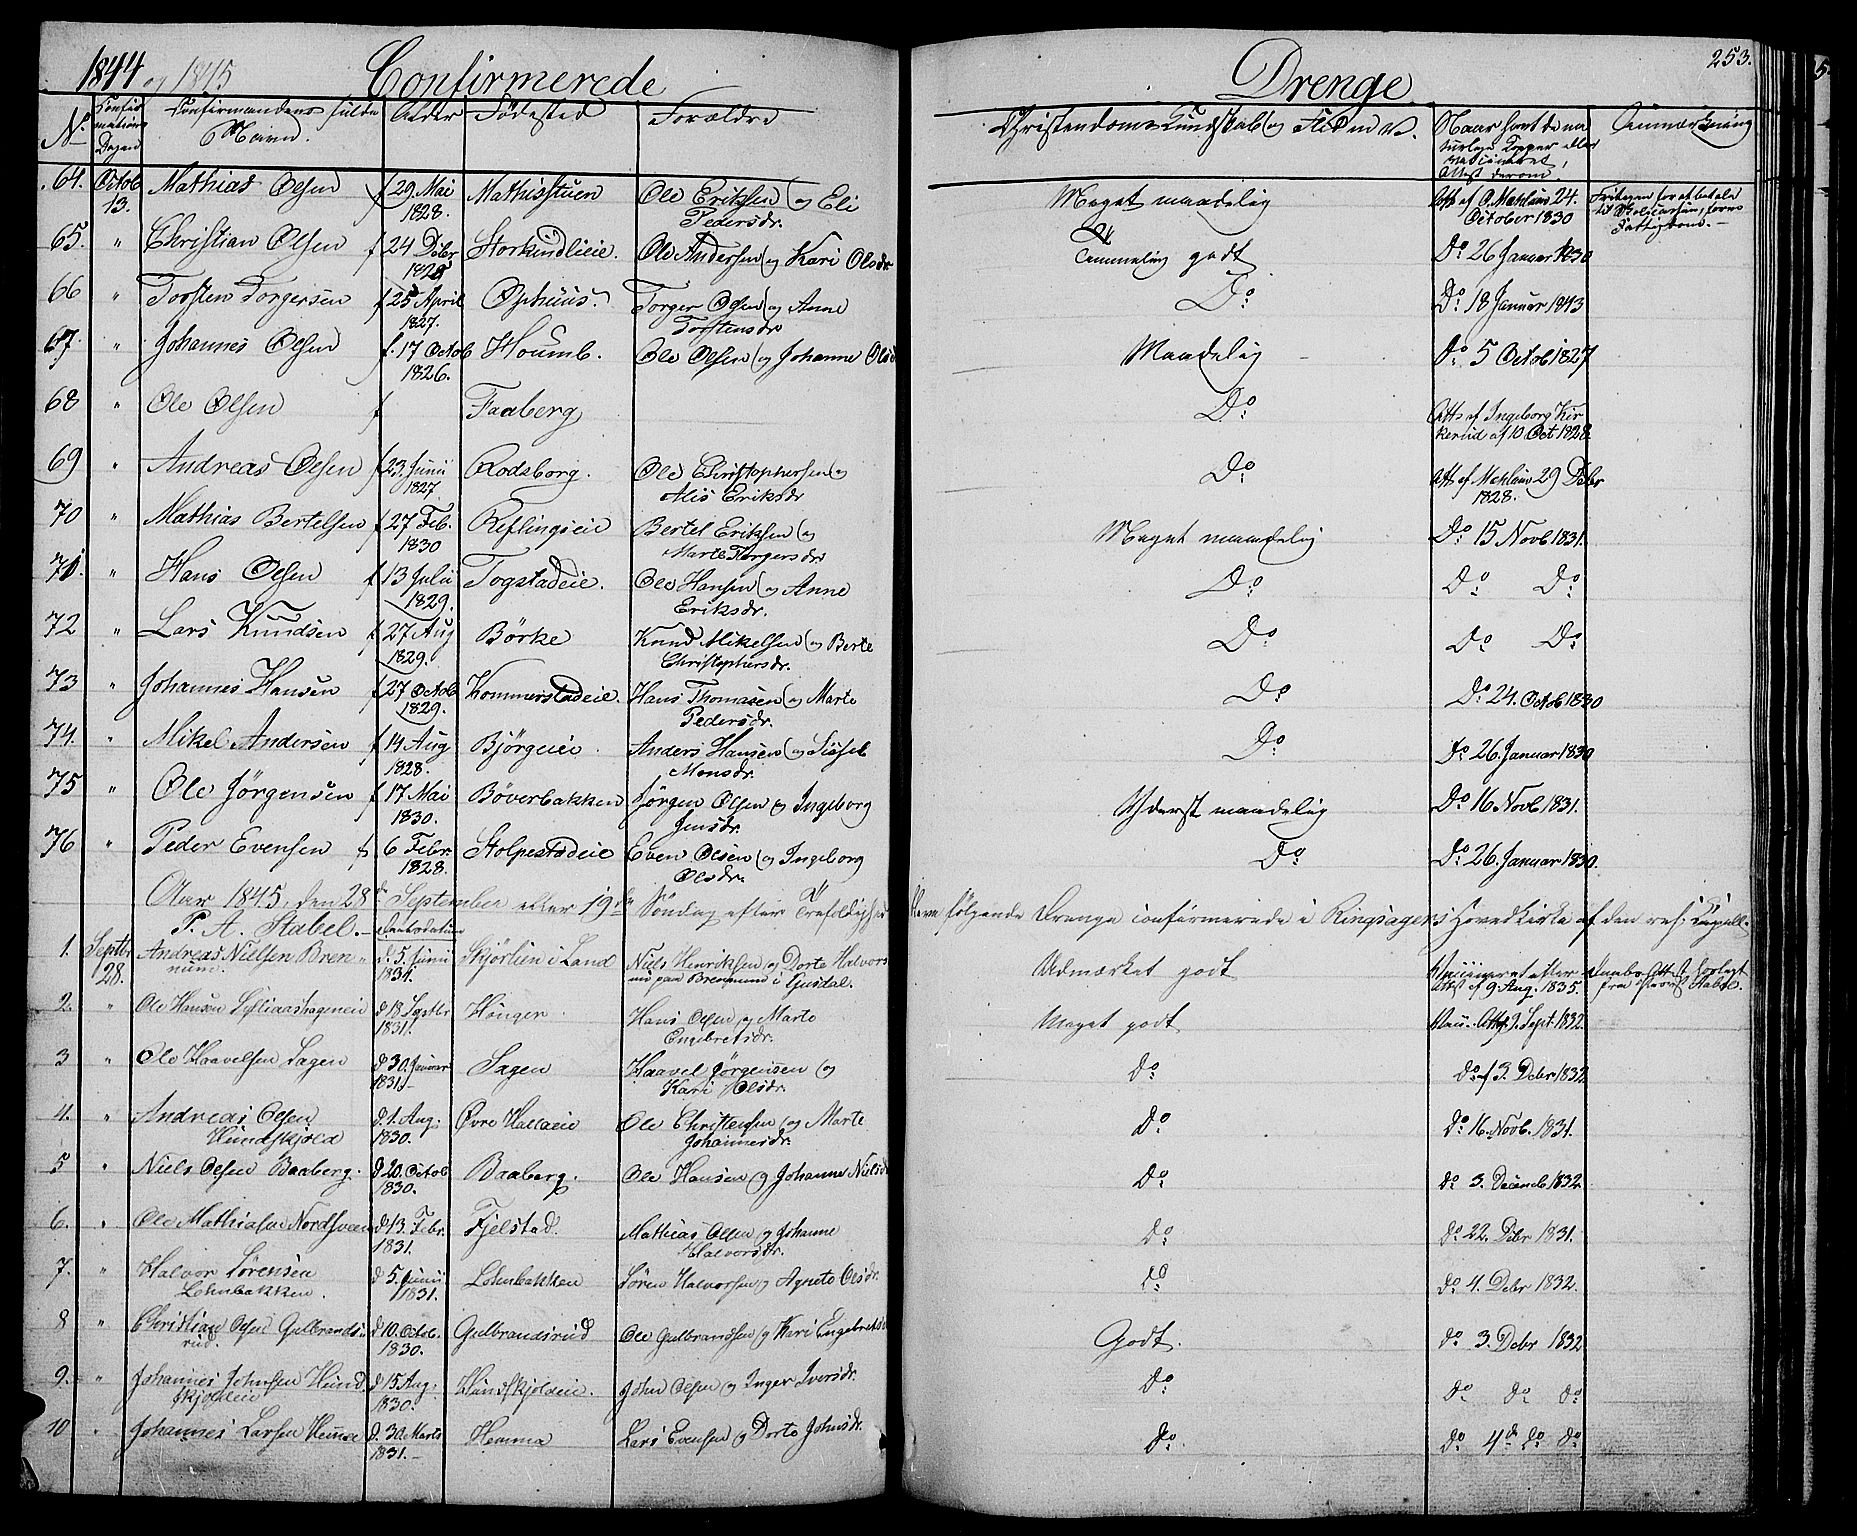 1844 og 1845 Confirmerede Drenge 253.
No Confirmations Dagen Confirmandens fulde Navn. Alder Födested Forældre Christendoms Kundskab og Flid m. v. Naar havt de naturlige Kopper eller vaccineret, Attest derom. Anmærkning
64. Octob 13. Mathias Olsen f 29. Mai 1828. Mathisstuen Ole Eriksen og Eli Pedersdr. Meget maadelig Att. af O. Mæhlum 24. October 1830
65. " Christian Olsen f 24 Debr 1828 Ole Andersen og Kari Olsdr Temmelig godt Do 26 Januar 1830
66 " Torsten Torgersen f 25 April 1827. Ophuus. Torger Olsen og Anne Torstensdr Do Do 18 Januar 1843
67. " Johannes Olsen f. 17 Octob 1826. Houmb. Ole Olsen og Johanne Olsd Maadelig Do 5 Octob 1827
68 " Ole Olsen f Faaberg Do Att. af Ingeborg Kirkerud af 10 Oct 1828
69 " Andreas Olsen f 23. Junii 1827. Rodsborg. Ole Christophersen og Alis Eriksdr Do Att. af Mæhlum 29 Debr 1828.
70 " Mathias Bertelsen f 27 Feb. 1830 Reflingseie Bertel Eriksen og Marte Torgersdr Meget maadelig Do 15 Novb 1831.
71. " Hans Olsen f 13 Julii 1829. Togstadeie. Ole Hansen og Anne Eriksdr. Do Do Do
72 " Lars Knudsen f 27 Aug 1829. Börke Knud Mikelsen og Berte Christophersdr. Do Do Do
73 " Johannes Hansen f 27 Octob 1829. Kommerstadeie. Hans Thomasen og Marte Pedersdr. Do Do 24. Octob 1830
74. " Mikel Andersen f 14 Aug 1828. Bjørgeeie. Anders Hansen og Sigfel Monsdr. Do Do 26. Januar 1830
75 " Ole Jörgensen f 17 Mai 1830. Böverbakken Jörgen Olsen og Ingeborg Jensdr. Yderst maadelig Do 16 Novb 1831.
76 " Peder Evensen f 6 Febr. 1828. Stolpestadeie Even Olsen og Ingeborg Olsdr. Do Do 26. Januar 1830.
Aar 1845, den 28de September eller 19de Söndag efter Trefoldighed blev fölgende Drenge confirmerede i Ringsagers Hovedkirke af den res: Capell.
P. A. Stabel. Daabsdatum
1. Septbr 28. Andreas Nielsen Brennum. d. 5. Junii 1834. Skjörlien i Land Niels Henriksen og Dorte Halvors Brennum i Gusdal. Udmærket godt Vaccineret efter Attest af 9. Aug. 1835. Daabs Attest forlagt fra Provst Stabel.
2. " Ole Hansen d 18 Septbr 1831. Hönger. Hans Olsen og Marte Engebretsdr. Meget godt Vacc. Att. 9. Sept. 1832.
3 " Ole Haavelsen Sagen d. 30. Januar 1831. Sagen Haavel Jörgensen og Kari Olsdr. do do af 3. Debr 1832
4. " Andreas Olsen Hundskjold d. 1. Aug. 1830. Övre Hallaeie Ole Christensen og Marte Johannesdr. do do 16. Novb. 1831.
5 " Niels Olsen Baaberg. d. 20. Octob. 1830. Baaberg. Ole Hansen og Johanne Nielsd do do 3. Decemb 1832.
6. " Ole Mathiasen Nordsveen d 13. Febr. 1831. Fjelstad. Mathias Olsen og Johanne Halvorsdr. do do 22. Debr 1831.
7. " Halvor Sörensen Lohnbakken. d 5. Junii 1831. Lohnbakken Sören Halvorsen og Agnete Olsdr. do do 4. Debr 1832.
8 " Christian Olsen Gulbrandsrud. d 10. Octob. 1830. Gulbrandsrud Ole Gulbrandsen og Kari Engebretsd Godt. do 3. Debr 1832
9. " Johannes Johnsen Hundskjoldeie d 15 Aug. 1830. Hundskjoldeie. John Olsen og Inger Iversdr. do do do do
10 " Johannes Larsen Hemma d. 30. Marts 1831. Hemma Lars Evensen og Dorte Johnsdr. do. do 4de do do